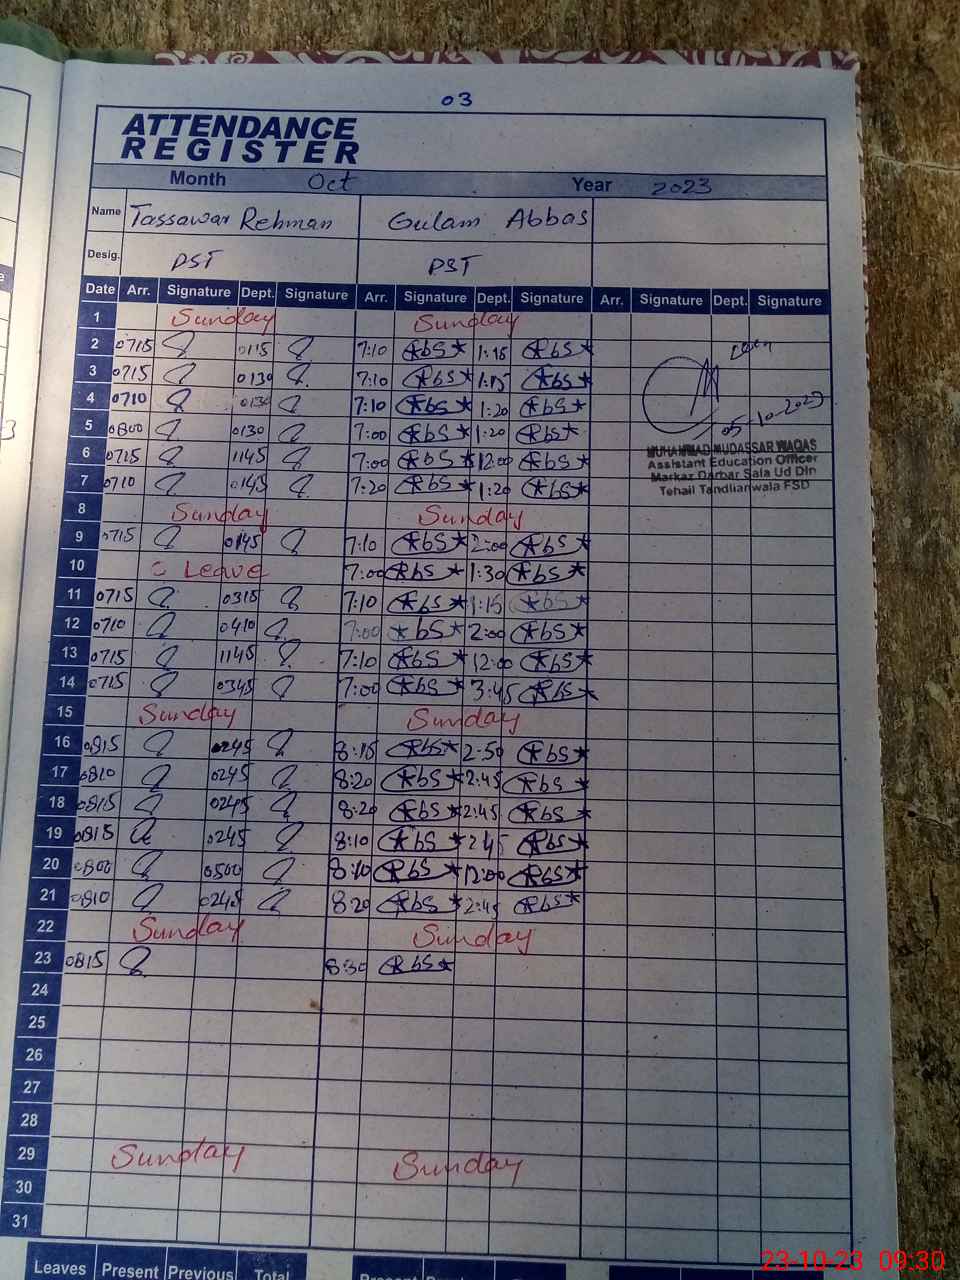 03
ATTENDANCE
REGISTER
Month Oct Year 2023
Name Tassawar Rehman Gulam Abbas
Desig. PST PST
Date Arr. Signature Dept. Signature Arr. Signature Dept. Signature Arr. Signature Dept. Signature
1 Sunday Sunday
2 0715 0115 7:10 Abs 1:15 Abs
3 0715 0130 7:10 Abs 1:15 Abs
4 0710 0130 7:10 Abs 1:20 Abs
5 0800 0130 7:00 Abs 1:20 Abs
05-10-2023
6 0715 1145 7:00 Abs 12:00 Abs
MUHAMMAD MUDASSAR WAQAS
Assistant Education Officer
Markaz Darbar Sala Ud Din
Tehail Tandlianwala FSD
7 0710 0145 7:20 Abs 1:20 Abs
8 Sunday Sunday
9 0715 0145 7:10 Abs 2:00 Abs
10 C Leave 7:00 Abs 1:30 Abs
11 0715 0315 7:10 Abs 1:15 Abs
12 0710 0410 7:00 Abs 2:00 Abs
13 0715 1145 7:10 Abs 12:00 Abs
14 0715 0345 7:00 Abs 3:45 Abs
15 Sunday Sunday
16 0815 0245 8:15 Abs 2:50 Abs
17 0810 0245 8:20 Abs 2:45 Abs
18 0815 0245 8:20 Abs 2:45 Abs
19 0815 0245 8:10 Abs 2:45 Abs
20 0800 0500 8:10 Abs 12:00 Abs
21 0810 0245 8:20 Abs 2:45 Abs
22 Sunday Sunday
23 0815 8:30 Abs
24
25
26
27
28
29 Sunday Sunday
30
31
Leaves Present Previous Total Present
23-10-23 09:30